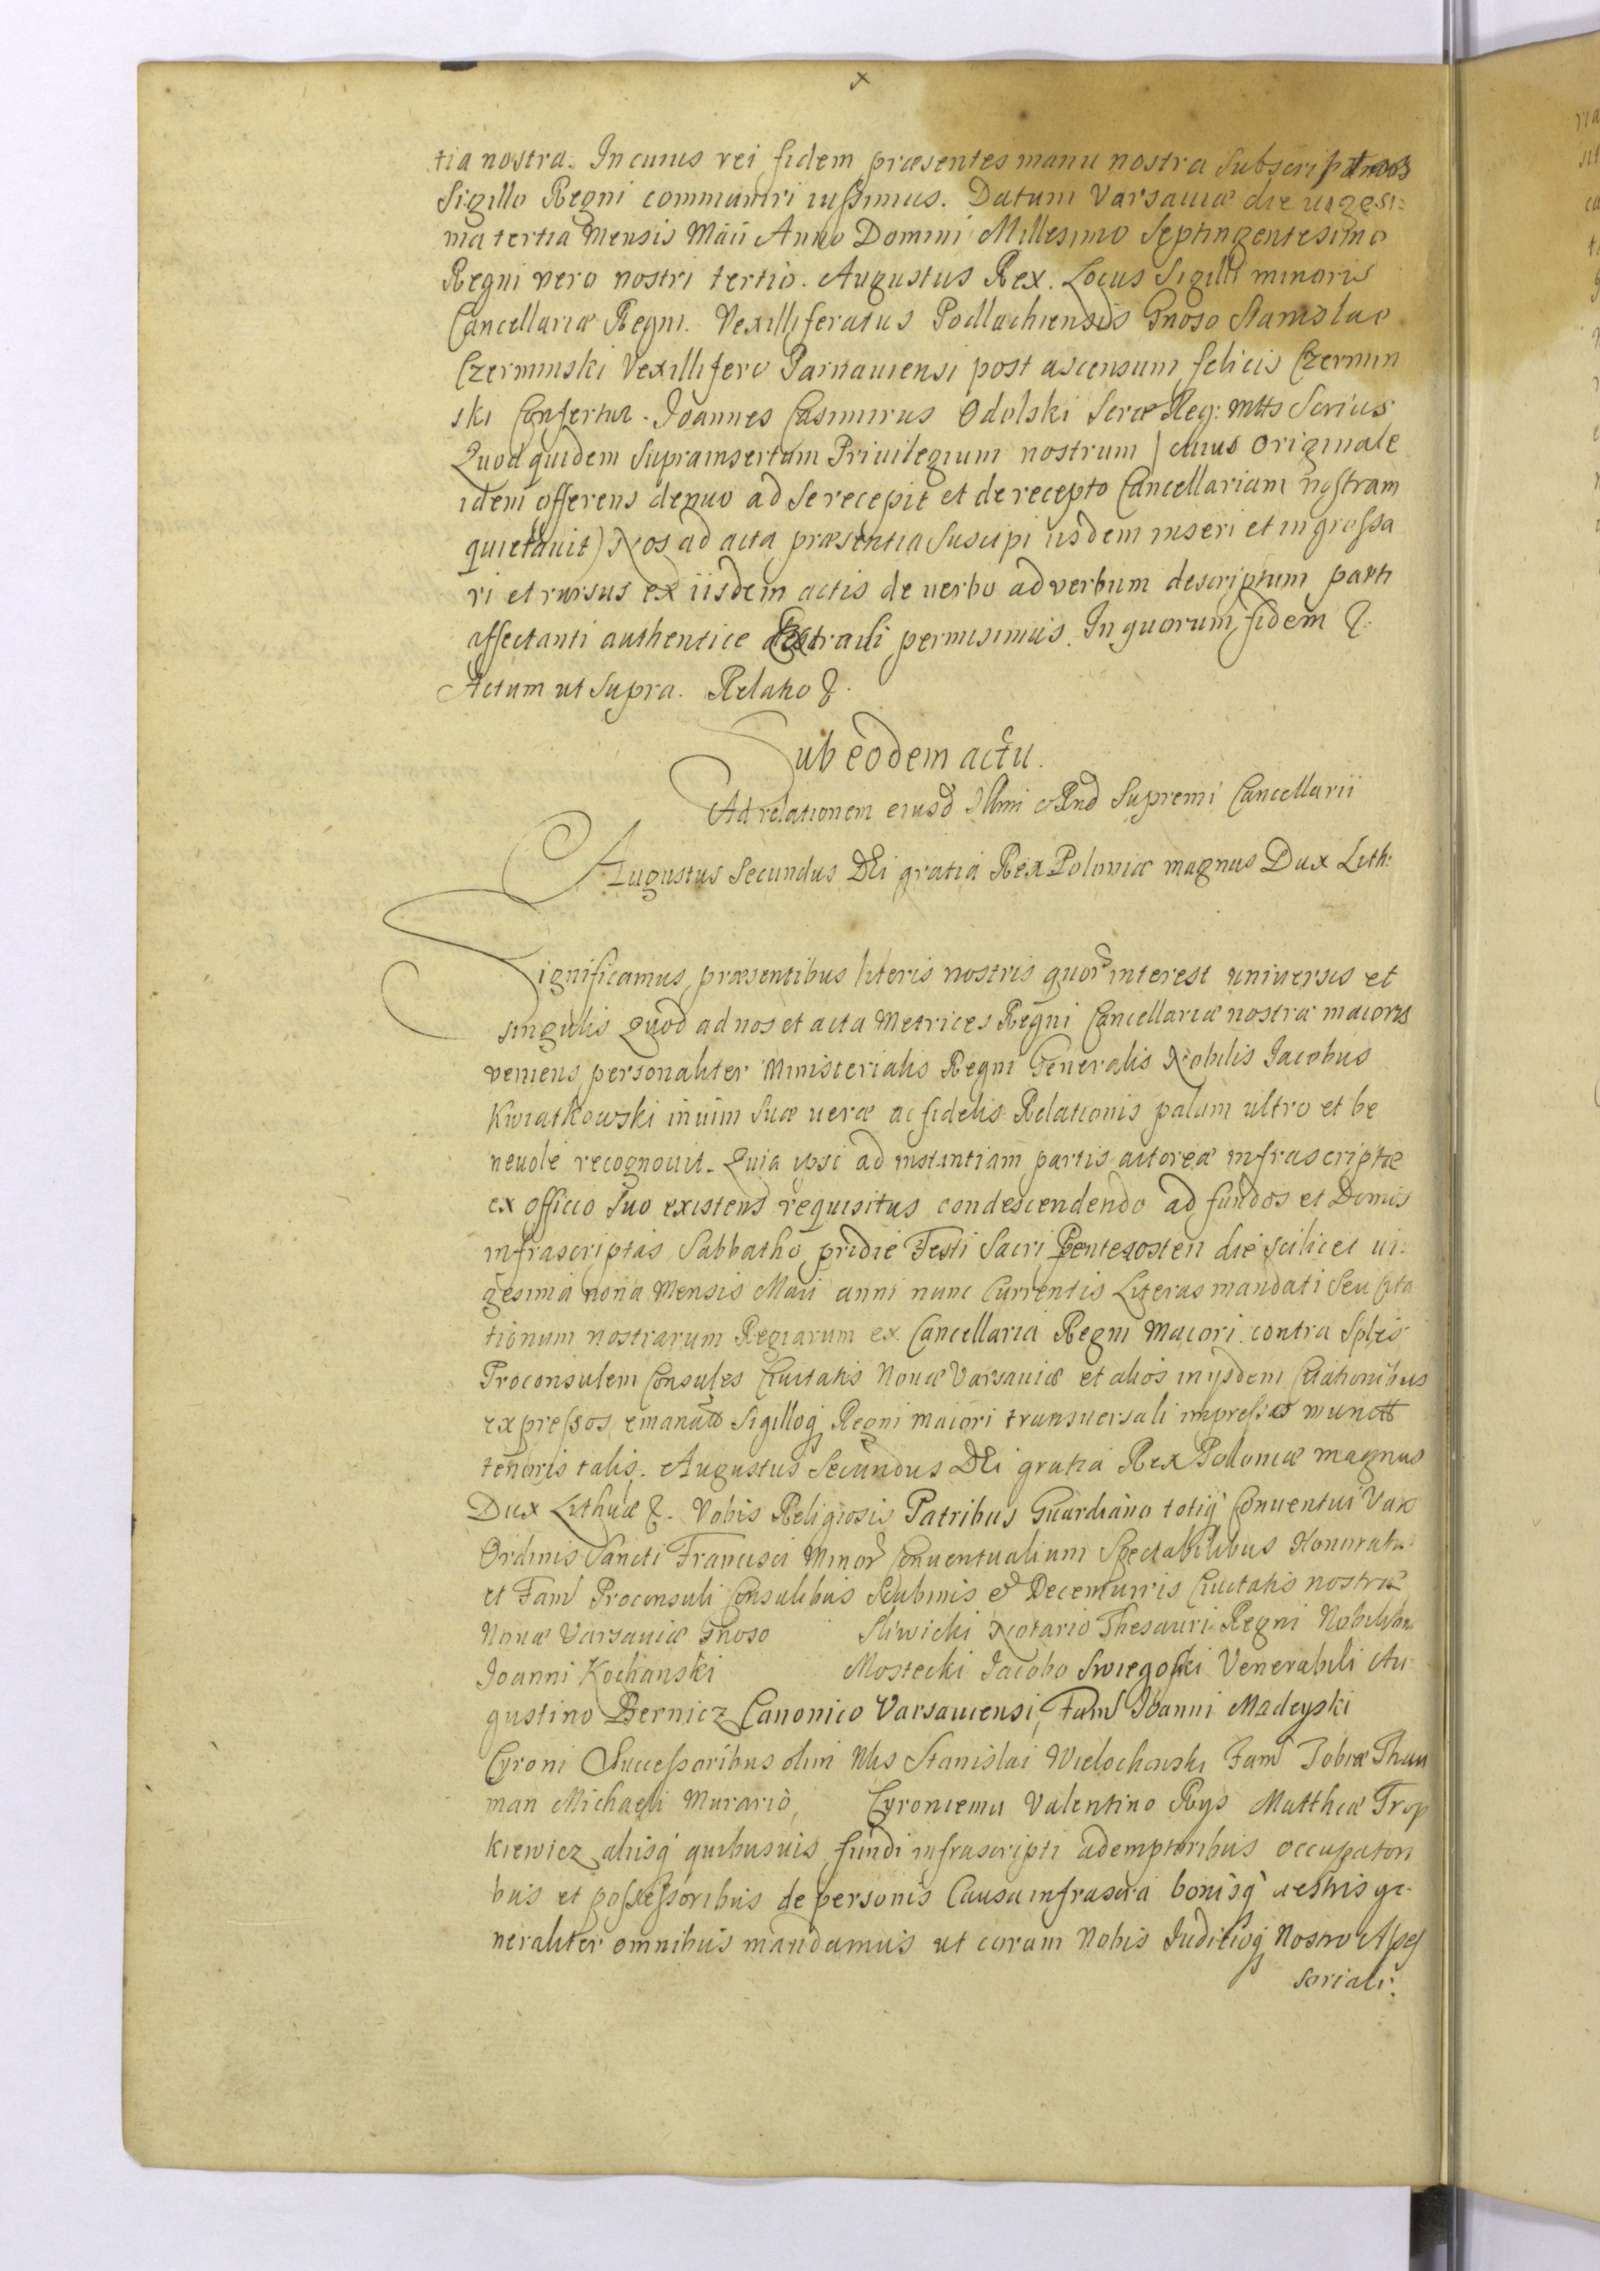 tia nostra. In cuius rei fidem præsentes manu nostra subscriptas
Sigillo Regni communiri iussimus. Datum Varsauiæ die uigesi:
ma tertia Mensis Maii Anno Domini Millesimo Septingentesimo
Regni vero nostri tertio. Augustus Rex. Locus Sigilli minoris
Cancellariæ Regni. Vexilliferatus Podlachiensis Gnoso Stanislao
Czerminski Vexillifero Parnauiensi post ascensum felicis Czermin
ski Confertur. Joannes Casimirus Odolski Seræ Reg: Mttis Scrius
Quod quidem Suprainsertum Priuilegium nostrum (cuius Originale
idem offerens denuo ad se recepit et de recepto Cancellariam nostram
quietauit) Nos ad acta præsentia suscipi iisdem inseri et ingrossa
ri et rursus ex iisdem actis de uerbo ad verbum descriptum parti
affectanti authentice extradi permisimus. In quorum fidem &.
Actum ut supra. Relatio &.
Sub eodem actu.
Ad relationem eiusd Illmi & Rnd Supremi Cancellarii
Augustus Secundus DEi gratia Rex Poloniæ magnus Dux Lith:
Significamus præsentibus literis nostris quor interest uniuersis et
singulis Quod ad nos et acta Metrices Regni Cancellariæ nostræ maioris
veniens personaliter Ministerialis Regni Generalis Nobilis Jacobus
Kwiatkowski in uim suæ ueræ ac fidelis Relationis palam ultro et be
neuole recognouit. Quia ipse ad instantiam partis actoreæ infrascriptæ
ex officio suo existens requisitus condescendendo ad fundos et Domos
infrascriptas Sabbatho pridie Festi Sacri Pentecosten die scilicet ui:
gesima nona Mensis Maii anni nunc Currentis Literas mandati seu Cita
tionum nostrarum Regiarum ex Cancellaria Regni Maiori contra Splēs
Proconsulem Consules Ciuitatis Nouæ Varsauiæ et alios in ijsdem Citationibus
expressos emanatas Sigilloq Regni maiori transuersali impresso
tenoris talis. Augustus Secundus DEi gratia Rex Poloniæ magnus
Dux Lithuæ &. Vobis Religiosis Patribus Guardiano totiq Conuentui Vars
Ordinis Sancti Francisci Minor Conuentualium Spectabilibus Honoratis
et Fam Proconsuli Consulibus Scabinis & Decemuiris Ciuitatis nostræ
Nouæ Varsauiæ Gnoso Sliwicki Notario Thesauri Regni Nobilibus
Joanni Kochanski Mostecki Jacobo Swiegoski Venerabili Au
gustino Bernicz Canonico Varsauiensi, Fam Joanni Madeyski
Cyroni Successoribus olim Nlis Stanislai Wielochowski Fam Tobiæ Thau
man Michaeli Murario, Cyroniemu Valentino Rys Matthiæ Trop
kiewicz alusq quibusuis fundi infrascripti ademptoribus occupatori
bus et possessoribus de personis Causa infrascra bonisq uestris ge
neraliter omnibus mandamus ut coram Nobis Juditioq Nostro Asses
soriali: